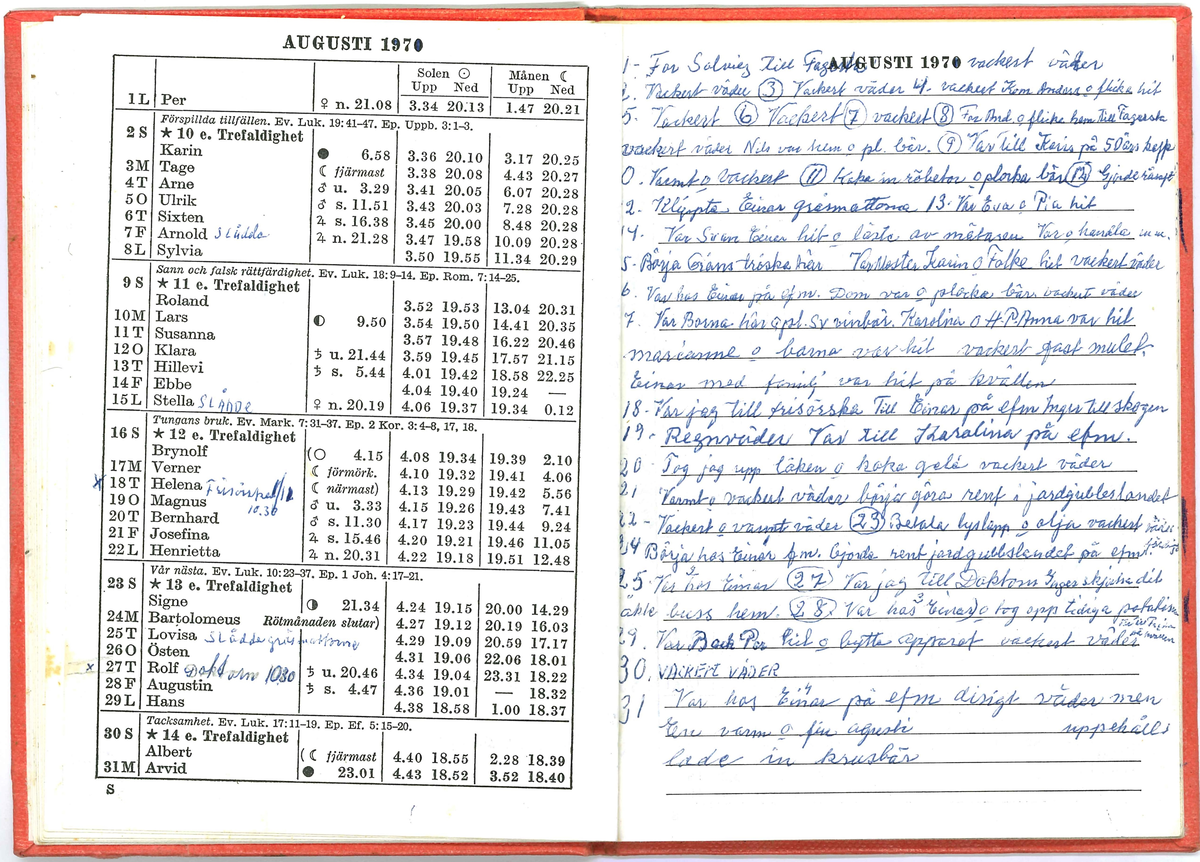 AUGUSTI 1970
Solen ☉ Månen ☾
Upp Ned Upp Ned
1 L Per ♀ n. 21.08 3.34 20.13 1.47 20.21
Förspillda tillfällen. Ev. Luk. 19:41–47. Ep. Uppb. 3:1–3.
2 S ★ 10 e. Trefaldighet
Karin ● 6.58 3.36 20.10 3.17 20.25
3 M Tage ☾ fjärmast 3.38 20.08 4.43 20.27
4 T Arne ♂ u. 3.29 3.41 20.05 6.07 20.28
5 O Ulrik ♂ s. 11.51 3.43 20.03 7.28 20.28
6 T Sixten ♃ s. 16.38 3.45 20.00 8.48 20.28
7 F Arnold slådda ♃ n. 21.28 3.47 19.58 10.09 20.28
8 L Sylvia 3.50 19.55 11.34 20.29
Sann och falsk rättfärdighet. Ev. Luk. 18:9–14. Ep. Rom. 7:14–25.
9 S ★ 11 e. Trefaldighet
Roland 3.52 19.53 13.04 20.31
10 M Lars ◐ 9.50 3.54 19.50 14.41 20.35
11 T Susanna 3.57 19.48 16.22 20.46
12 O Klara ♄ u. 21.44 3.59 19.45 17.57 21.15
13 T Hillevi ♄ s. 5.44 4.01 19.42 18.58 22.25
14 F Ebbe 4.04 19.40 19.24 —
15 L Stella SLÅDDE ♀ n. 20.19 4.06 19.37 19.34 0.12
Tungans bruk. Ev. Mark. 7:31–37. Ep. 2 Kor. 3:4–8, 17, 18.
16 S ★ 12 e. Trefaldighet
Brynolf (○ 4.15 4.08 19.34 19.39 2.10
17 M Verner ☾ förmörk. 4.10 19.32 19.41 4.06
x 18 T Helena ☾ närmast) 4.13 19.29 19.42 5.56
19 O Magnus 10.30 ♂ u. 3.33 4.15 19.26 19.43 7.41
20 T Bernhard ♂ s. 11.30 4.17 19.23 19.44 9.24
21 F Josefina ♃ s. 15.46 4.20 19.21 19.46 11.05
22 L Henrietta ♃ n. 20.31 4.22 19.18 19.51 12.48
Vår nästa. Ev. Luk. 10:23–37. Ep. 1 Joh. 4:17–21.
23 S ★ 13 e. Trefaldighet
Signe ◑ 21.34 4.24 19.15 20.00 14.29
24 M Bartolomeus Rötmånaden slutar) 4.27 19.12 20.19 16.03
25 T Lovisa Slådde gräsmattorna 4.29 19.09 20.59 17.17
26 O Östen 4.31 19.06 22.06 18.01
x 27 T Rolf Doktorn 10.30 ♄ u. 20.46 4.34 19.04 23.31 18.22
28 F Augustin ♄ s. 4.47 4.36 19.01 — 18.32
29 L Hans 4.38 18.58 1.00 18.37
Tacksamhet. Ev. Luk. 17:11–19. Ep. Ef. 5:15–20.
30 S ★ 14 e. Trefaldighet
Albert (☾ fjärmast 4.40 18.55 2.28 18.39
31 M Arvid ● 23.01 4.43 18.52 3.52 18.40
S
AUGUSTI 1970
1 - For Solvieg till Fagersta vackert väder
2. Vackert väder 3 Vackert väder 4. vackert Kom Anders o flicka hit
5. Vackert 6 Vackert 7 vackert 8 For And. o flicka hem till Fagersta
vackert väder Nils var hem o pl. bär. 9 Var till Karis på 50 års kaffe
0. Varmt o vackert 11 Koka in rödbetor o plocka bär 12 Gjorde
2. Klippte Einar gräsmattorna 13. Var Eva o Pia hit
14. Var Sven Einar hit o läste av mätaren Var o handla
5 - Börja Gräns tröska här Var Moster Karin o Folke hit vackert väder
6. Var hos Einar på efm. Dom var o plocka bär. vackert väder
7. Var Barna här o pl. Sv vinbär. Karolina o H.P. Anna var hit
marianne o barna var hit vackert fast mulet.
Einar med familj var hit på kvällen
18 - Var jag till frisörska Till Einar på efm Inger till skogen
19 - Regnväder Var till Karolina på efm.
20 - Tog jag upp löken o koka gelé vackert väder
21 Varmt o vackert väder börja göra rent i jordgubbslandet
22 - Vackert o varmt väder 23 Betala lyslapp o olja vackert
24 Börja hos Einar fm. Gjorde rent jordgubbslandet på efm.
25 Var hos Einar 27 Var jag till Doktorn Inger skjutsa dit
åkte buss hem. 28. Var hos Einar o tog opp tidiga potatisen
29. Var Back Per hit o bytte apparat vackert väder
30. VACKERT VÄDER
31 Var hos Einar på efm disigt väder men
En varm o fin agusti uppehålls
lade in krusbär